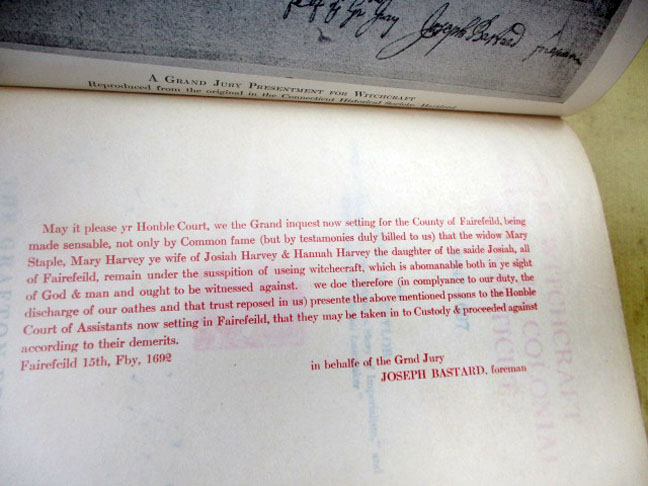 Joseph Bastard foreman
A Grand Jury Presentment for Witchcraft
Reproduced from the original in the Connecticut Historical Society, Hartford
May it please yr Honble Court, we the Grand inquest now setting for the County of Fairefeild, being
made sensable, not only by Common fame (but by testamonies duly billed to us) that the widow Mary
Staple, Mary Harvey ye wife of Josiah Harvey & Hannah Harvey the daughter of the saide Josiah, all
of Fairefeild, remain under the susspition of useing witchecraft, which is abomanable both in ye sight
of God & man and ought to be witnessed against. we doe therefore (in complyance to our duty, the
discharge of our oathes and that trust reposed in us) presente the above mentioned pssons to the Honble
Court of Assistants now setting in Fairefeild, that they may be taken in to Custody & proceeded against
according to their demerits.
Fairefeild 15th, Fby, 1692
in behalfe of the Grnd Jury
JOSEPH BASTARD, foreman